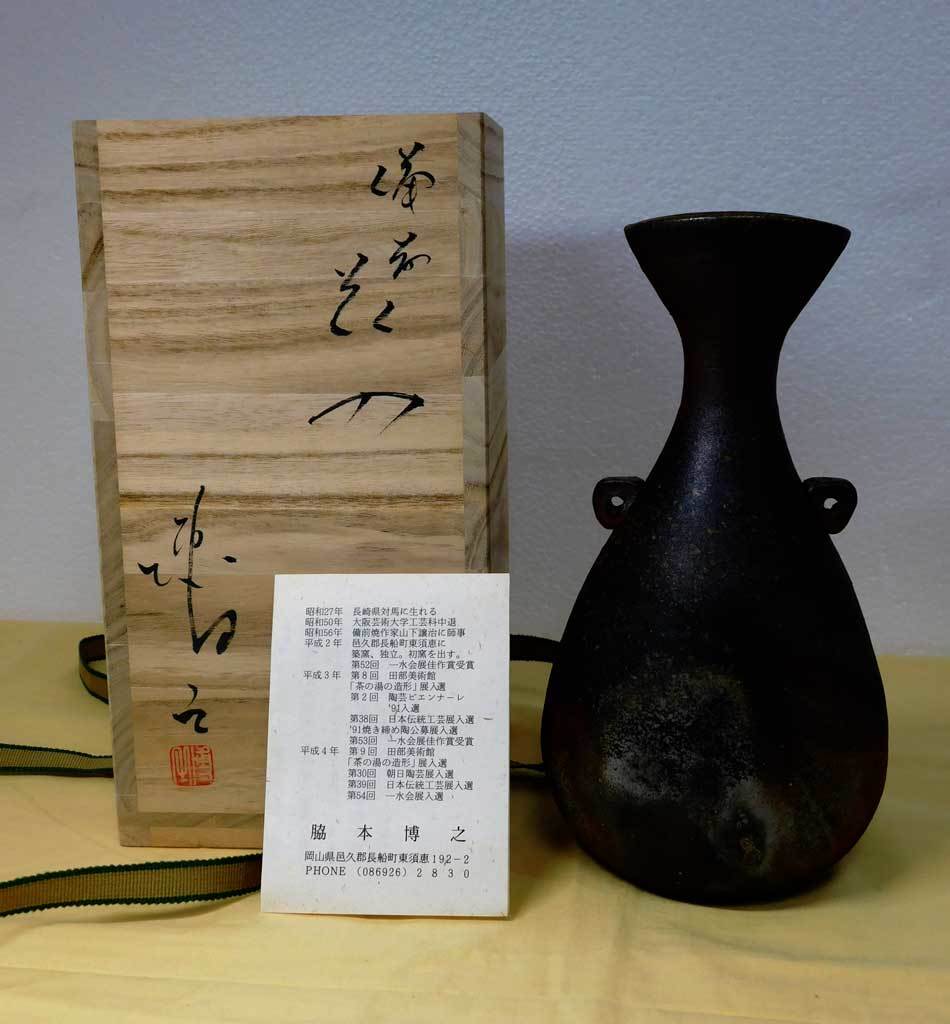 備前
花入
博之
昭和27年 長崎県対馬に生れる
昭和50年 大阪芸術大学工芸科中退
昭和56年 備前焼作家山下譲治に師事
平成2年 邑久郡長船町東須恵に
築窯、独立。初窯を出す。
第52回 一水会展佳作賞受賞
平成3年 第8回 田部美術館
「茶の湯の造形」展入選
第2回 陶芸ビエンナーレ
'91入選
第38回 日本伝統工芸展入選
'91焼き締め陶公募展入選
第53回 一水会展佳作賞受賞
平成4年 第9回 田部美術館
「茶の湯の造形」展入選
第30回 朝日陶芸展入選
第39回 日本伝統工芸展入選
第54回 一水会展入選
脇本博之
岡山県邑久郡長船町東須恵192-2
PHONE (086926) 2830